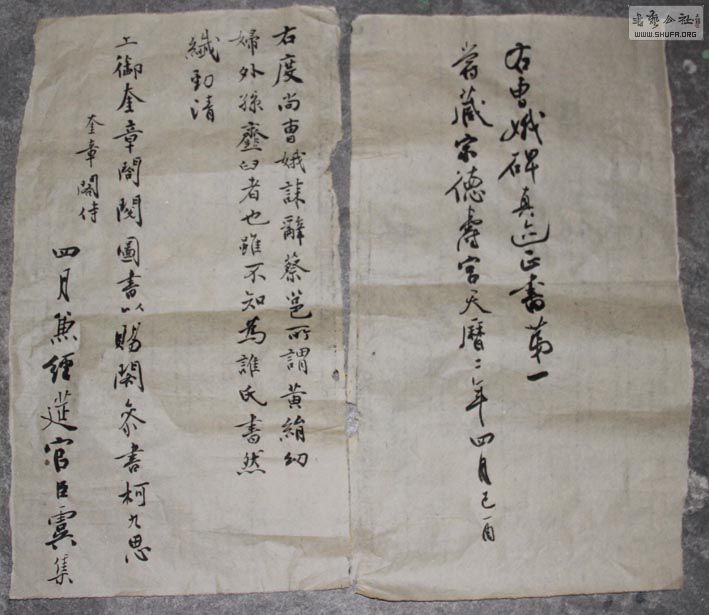 右曹娥碑真迹正書第一
昔藏宗德壽宮天曆二年四月己酉
右度尚曹娥誄辭蔡邕所謂黃絹幼
婦外孫齏臼者也雖不知為誰氏書然
纖勁清
奎章閣侍
上御奎章閣閱圖書以賜閱參書柯九思
四月兼經筵官臣虞集
書藝公社
WWW.SHUFA.ORG